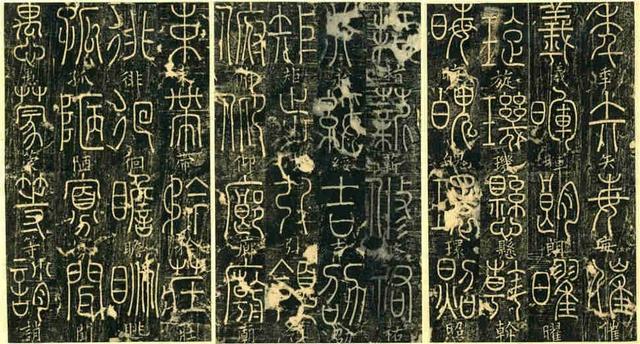 年矢每催
羲暉朗曜
旋璣懸幹
晦魄環照
指薪修祐
永綏吉劭
矩步引領
俯仰廊廟
束帶矜莊
徘徊瞻眺
孤陋寡聞
愚蒙等誚